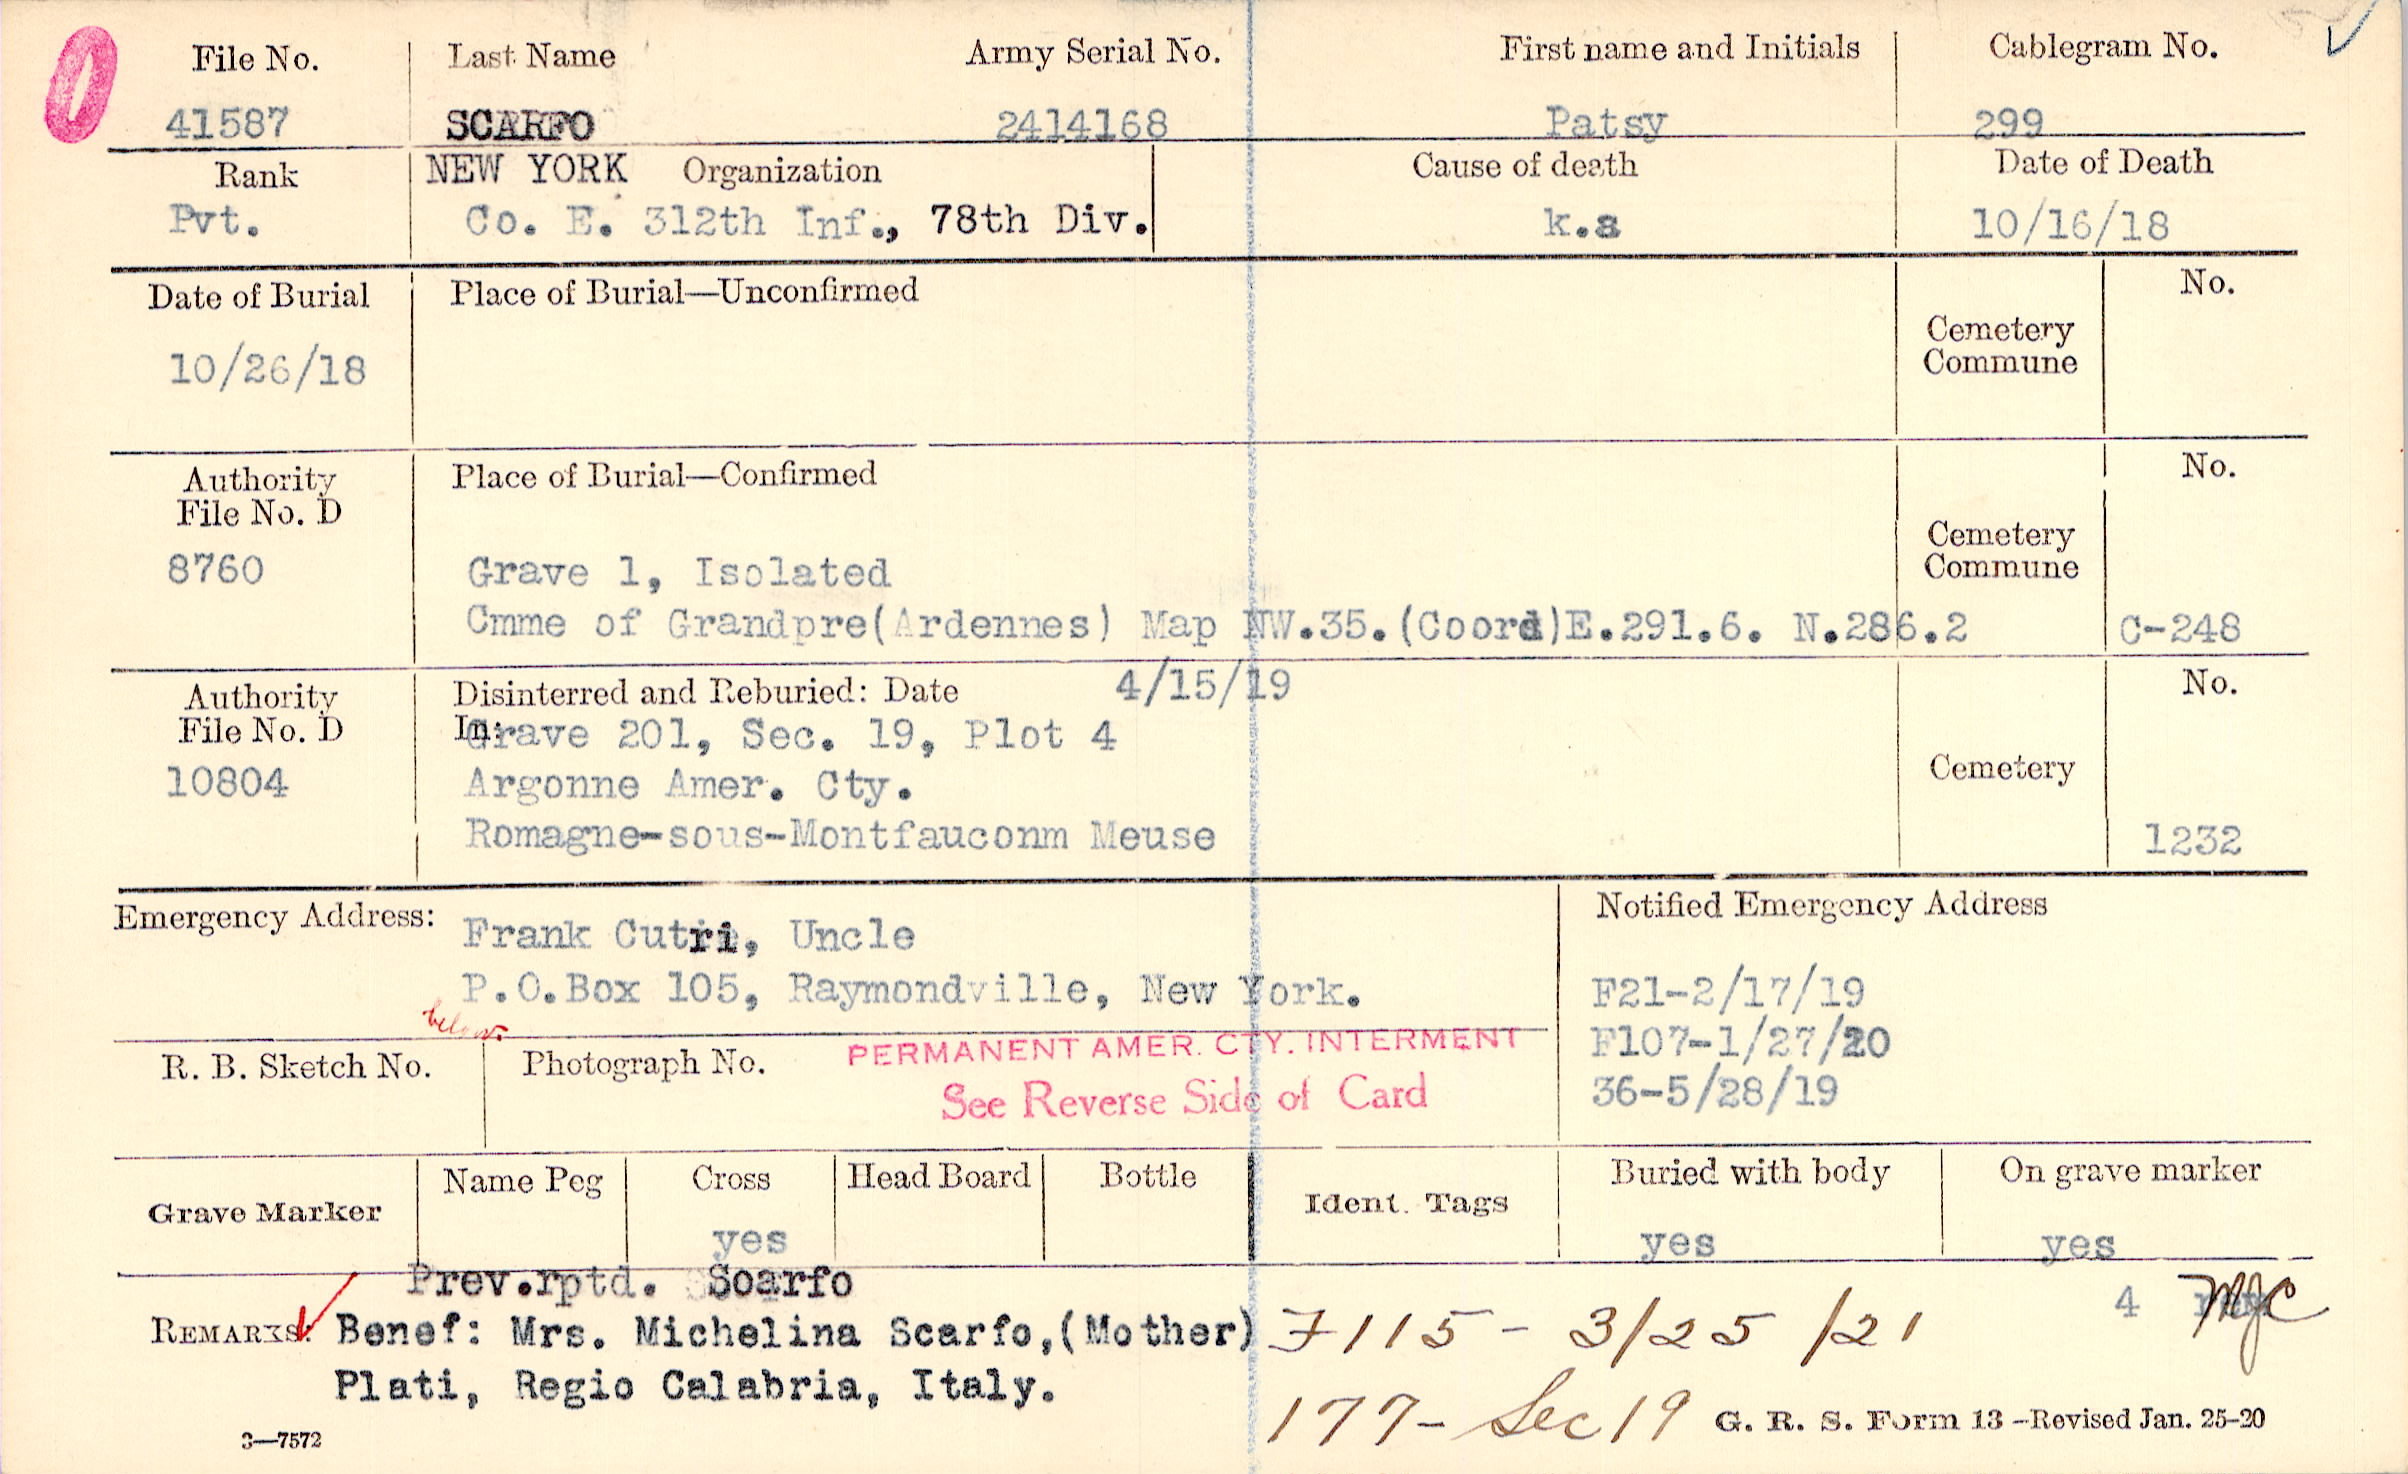 O
File No. Last Name Army Serial No. First name and Initials Cablegram No.
41587 SCARFO 2414168 Patsy 299
Rank NEW YORK Organization Cause of death Date of Death
Pvt. Co. E. 312th Inf., 78th Div. k.a 10/16/18
Date of Burial Place of Burial—Unconfirmed No.
10/26/18
Cemetery
Commune
Authority Place of Burial—Confirmed No.
File No. D
Cemetery
8760 Grave 1, Isolated Commune
Cmme of Grandpre(Ardennes) Map NW.35.(Coord)E.291.6. N.286.2 C-248
Authority Disinterred and Reburied: Date 4/15/19 No.
File No. D In: Grave 201, Sec. 19, Plot 4
10804 Argonne Amer. Cty. Cemetery
Romagne-sous-Montfauconm Meuse 1232
Emergency Address: Notified Emergency Address
Frank Cutri, Uncle
P.O.Box 105, Raymondville, New York. F21-2/17/19
below
F107-1/27/20
R. B. Sketch No. Photograph No. PERMANENT AMER. CTY. INTERMENT
See Reverse Side of Card 36-5/28/19
Grave Marker Name Peg Cross Head Board Bottle Ident. Tags Buried with body On grave marker
yes yes yes
Prev.rptd. Soarfo
REMARKS: Benef: Mrs. Michelina Scarfo,(Mother) F115 - 3/25/21 4 MJC
Plati, Regio Calabria, Italy.
177- Sec 19
3—7572 G. R. S. Form 13 -Revised Jan. 25-20